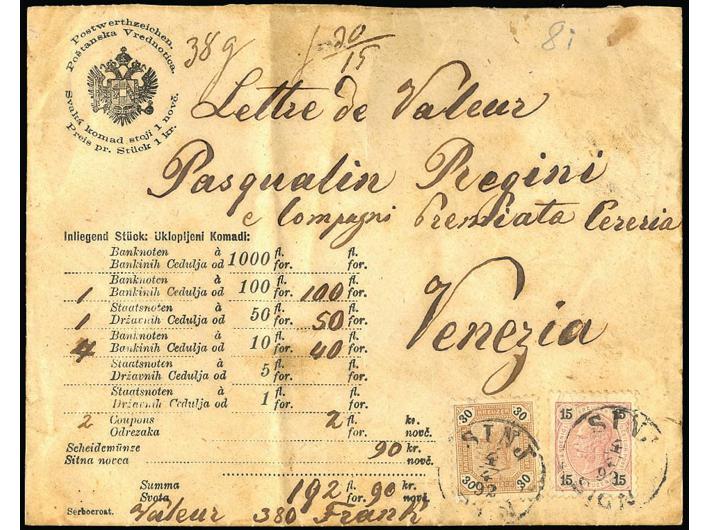 Postwerthzeichen.
Poštanska Vrednotica.
Svaki komad stoji 1 novč.
Preis pr. Stück 1 kr.
38 g
f 30/15
8i
Lettre de Valeur
Pasqualin Regini
e Compagni Premiata Cereria
Venezia
Inliegend Stück: Uklopljeni Komadi:
Banknoten à 1000 fl. fl.
Bankinih Cedulja od for. for.
1 Banknoten à 100 fl. 100 fl.
Bankinih Cedulja od for. for.
1 Staatsnoten à 50 fl. 50 fl.
Državnih Cedulja od for. for.
4 Banknoten à 10 fl. 40 fl.
Bankinih Cedulja od for. for.
Staatsnoten à 5 fl. fl.
Državnih Cedulja od for. for.
Staatsnoten à 1 fl. fl.
Državnih Cedulja od for. for.
2 Coupons 2 fl. kr.
Odrezaka for. novč.
Scheidemünze 90 kr.
Sitna novca novč.
Summa 192 fl. 90 kr.
Svota for. novč.
Serbocroat. Valeur 380 Frank
30 KREUZER 30
30 30
15 15
15 15
SINJ
4/4
92
SIGN
SINJ
4/4
92
SIGN